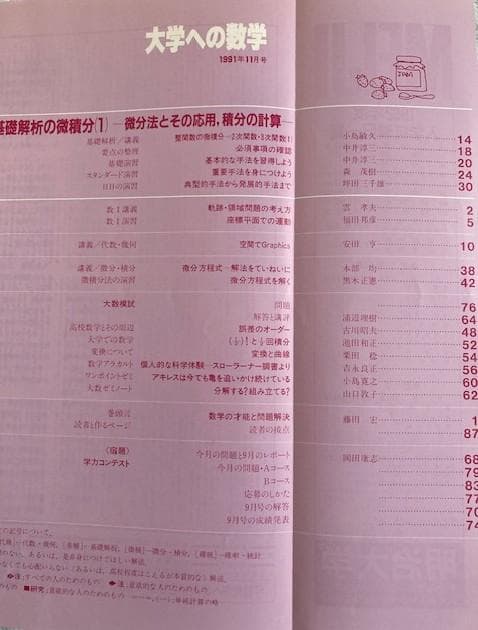 大学への数学
1991年11月号
JAM
基礎解析の微積分(1) ―微分法とその応用,積分の計算―
基礎解析/講義 整関数の微積分―2次関数・3次関数 小島敏久 14
要点の整理 必須事項の確認 中井淳三 18
基礎演習 基本的な手法を習得しよう 中井淳三 20
スタンダード演習 重要手法を身につけよう 森 茂樹 24
日日の演習 典型的手法から発展的手法まで 坪田三千雄 30
数Ⅰ講義 軌跡・領域問題の考え方 雲 孝夫 2
数Ⅰ演習 座標平面での運動 福田邦彦 5
講義/代数・幾何 空間でGraphics 安田 亨 10
講義/微分・積分 微分方程式―解法をていねいに 本部 均 38
微積分法の演習 微分方程式を解く 黒木正憲 42
大数模試 問題 76
解答と講評 浦辺理樹 64
高校数学とその周辺 誤差のオーダー 古川昭夫 48
大学での数学 (1/2)!と1/2回積分 池田和正 52
変換について 変換と曲線 栗田 稔 54
数学アラカルト 個人的な科学体験―スローラーナー調書より 吉永良正 56
ワンポイントゼミ アキレスは今でも亀を追いかけ続けている 小島寛之 60
大数ゼミノート 分解する?組み立てる? 山口敦子 62
巻頭言 数学の才能と問題解決 藤田 宏 1
読者と作るページ 読者の接点 87
〈宿題〉 今月の問題と9月のレポート 岡田康志 68
学力コンテスト 今月の問題・Aコース 79
Bコース 83
応募のしかた 77
9月号の解答 70
9月号の成績発表 74
の記号について.